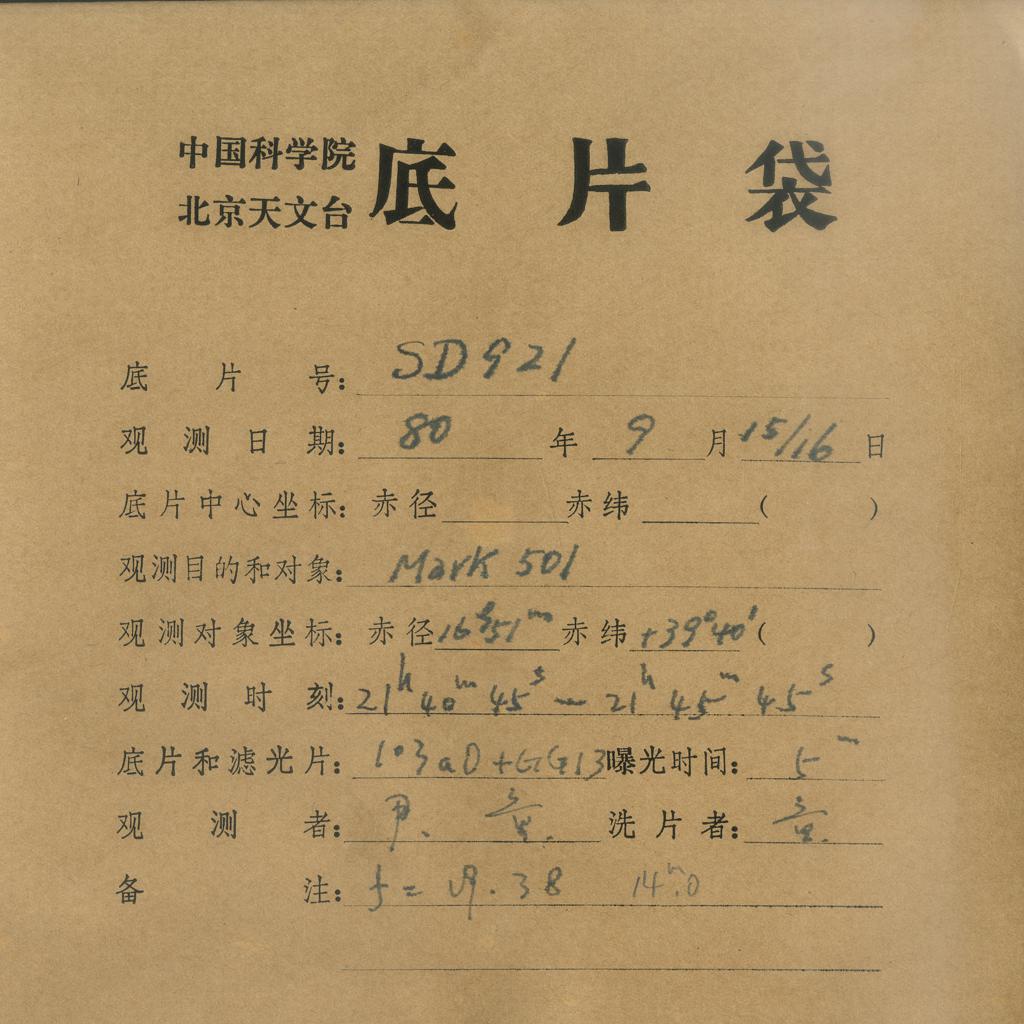 中国科学院
北京天文台
底片袋
底片号：SD921
观测日期：80年9月15/16日
底片中心坐标：赤径 赤纬 ( )
观测目的和对象：Mark 501
观测对象坐标：赤径16h51m 赤纬+39°40′( )
观测时刻：21h40m45s — 21h45m45s
底片和滤光片：103aD+GG13 曝光时间：5m
观测者： 洗片者：
备注：f = 19.38 14m.0